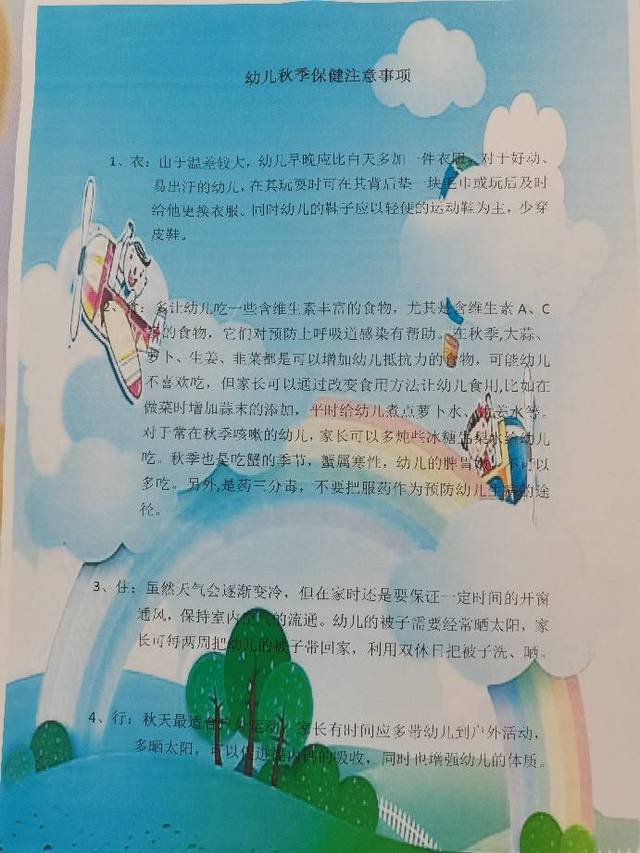 幼儿秋季保健注意事项
1、衣：由于温差较大，幼儿早晚应比白天多加一件衣服。对于好动、
易出汗的幼儿，在其玩耍时可在其背后垫一块毛巾或玩后及时
给他更换衣服、同时幼儿的鞋子应以轻便的运动鞋为主，少穿
皮鞋。
2、食：多让幼儿吃一些含维生素丰富的食物，尤其是含维生素A、C
的食物，它们对预防上呼吸道感染有帮助。在秋季,大蒜、
萝卜、生姜、韭菜都是可以增加幼儿抵抗力的食物，可能幼儿
不喜欢吃，但家长可以通过改变食用方法让幼儿食用,比如在
做菜时增加蒜末的添加，平时给幼儿煮点萝卜水、姜水等。
对于常在秋季咳嗽的幼儿，家长可以多炖些冰糖雪梨水给幼儿
吃。秋季也是吃蟹的季节，蟹属寒性，幼儿的脾胃 不可以
多吃。另外,是药三分毒，不要把服药作为预防幼儿生病的途
径。
3、住：虽然天气会逐渐变冷，但在家时还是要保证一定时间的开窗
通风，保持室内空气的流通。幼儿的被子需要经常晒太阳，家
长可每两周把幼儿的被子带回家，利用双休日把被子洗、晒。
4、行：秋天最适合户外运动，家长有时间应多带幼儿到户外活动，
多晒太阳，可以促进体内钙的吸收，同时也增强幼儿的体质。